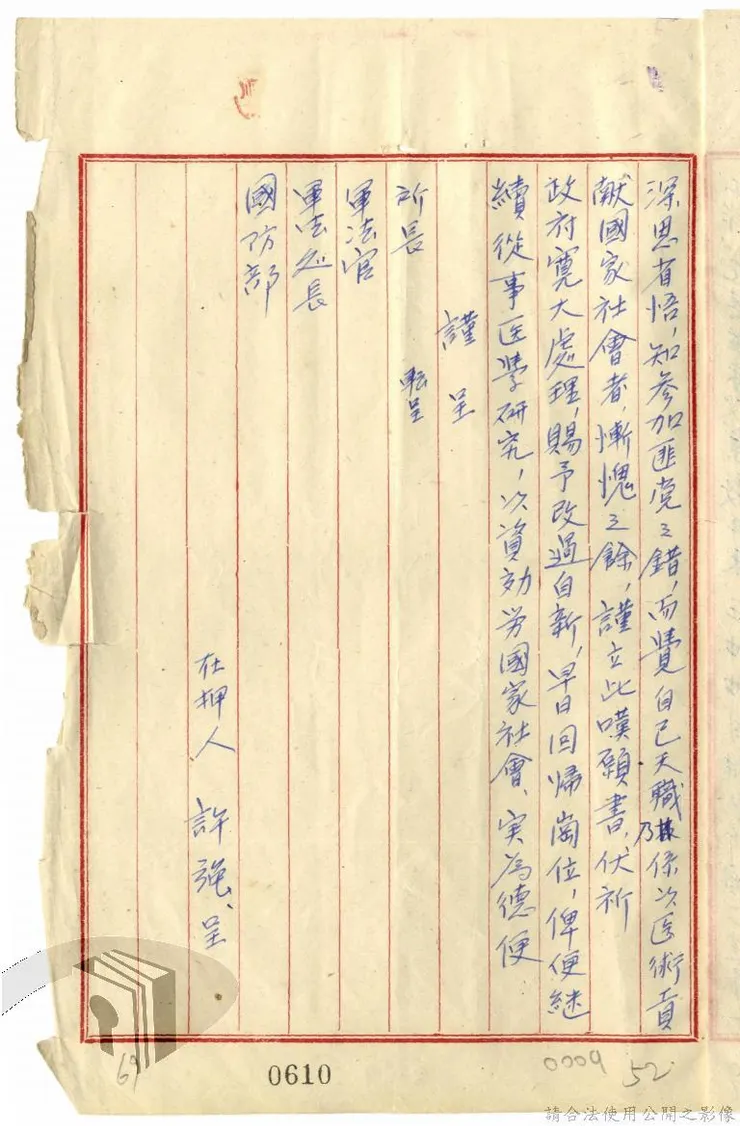 深思省悟，知参加匪党之錯，而覺自己天職乃係以医術貢
献國家社會者，慚愧之餘，謹立此嘆願書，伏祈
政府寛大處理，賜予改過自新，早日回帰崗位，俾便継
續從事医學研究，以資効労國家社會、実為德便
謹呈
所長
轉呈
軍法官
軍法处長
國防部
在押人 許強、呈
69
0610
0009
52
請合法使用公開之影像